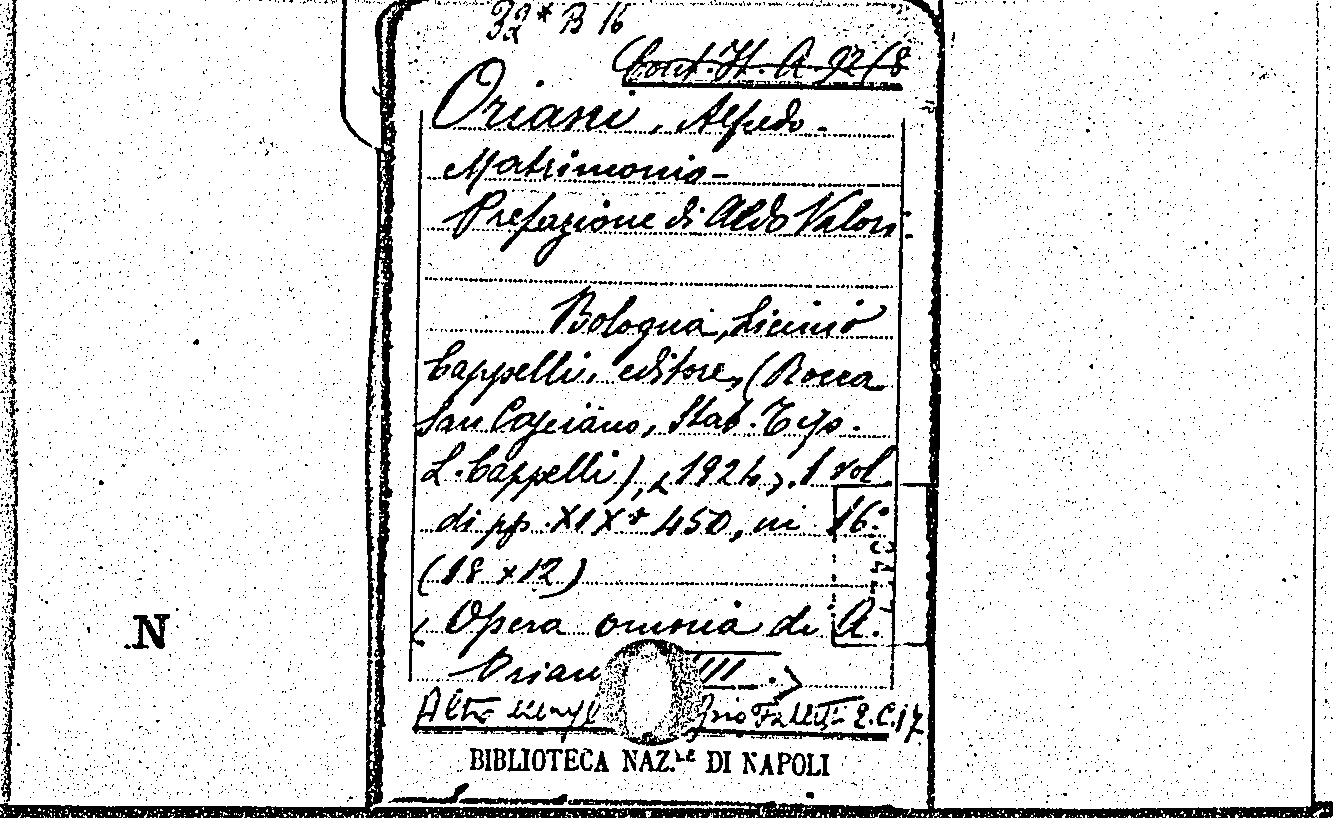 B 16
Cont. H. A 92/8
Oriani, Alfredo -
Matrimonio -
Prefazione di Aldo Valori.
Bologna, Licinio
Cappelli, editore, (Rocca
San Casciano, Stab. Tip.
L. Cappelli), 1924, 1 vol
di pp. XIX + 450, in 16°
(18 x 12)
( Opera omnia di A.
Oriani III.)
N
BIBLIOTECA NAZ.LE DI NAPOLI